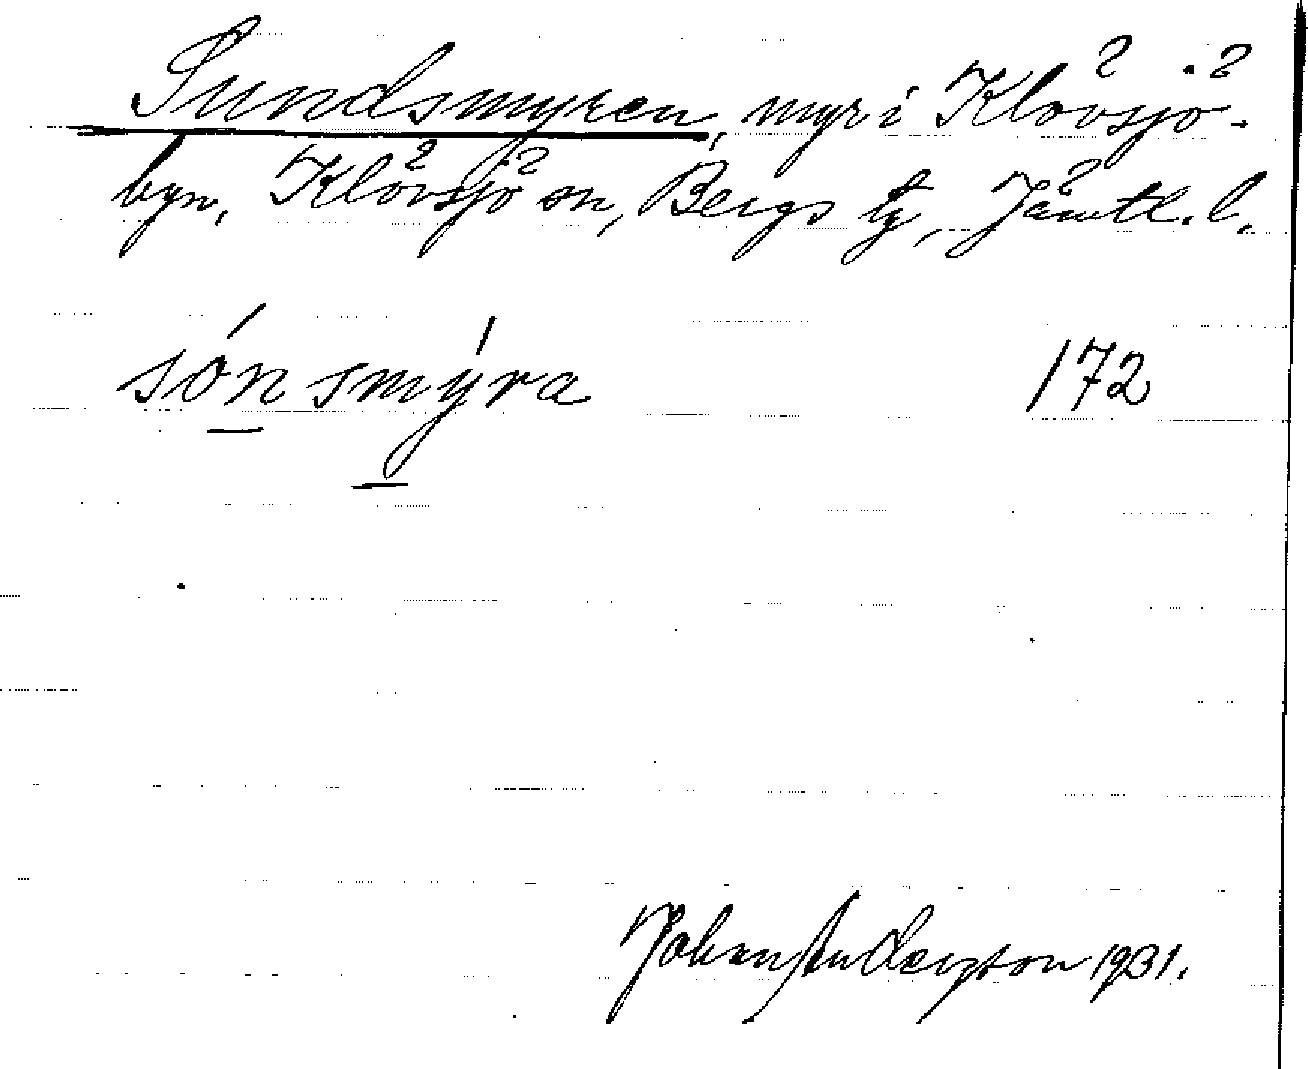 Sundsmyren, myr i Klövsjö-
byn, Klövsjö sn, Bergs tg, Jämtl. l.
són smýra 172
Johan Anderzson 1931.